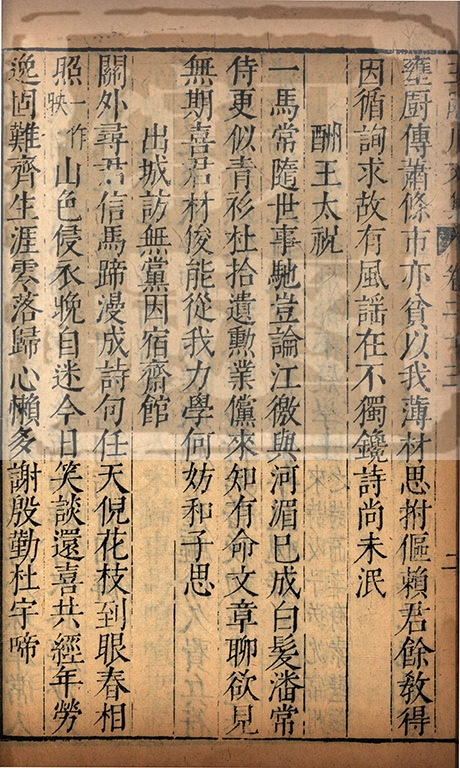 壅廚傳蕭條市亦貧以我薄材思拊傴賴君餘教得
因循詢求故有風謡在不獨鑱詩尚未泯
酬王太祝
一馬常隨世事馳豈論江徼與河湄已成白髮潘常
侍更似青衫杜拾遺勲業儻來知有命文章聊欲見
無期喜君材俊能從我力學何妨和子思
出城訪無黨因宿齋館
關外尋君信馬蹄漫成詩句任天倪花枝到眼春相
照一作映山色侵衣晚自迷今日笑談還喜共經年勞
逸固難齊生涯零落歸心懶多謝殷勤杜宇啼